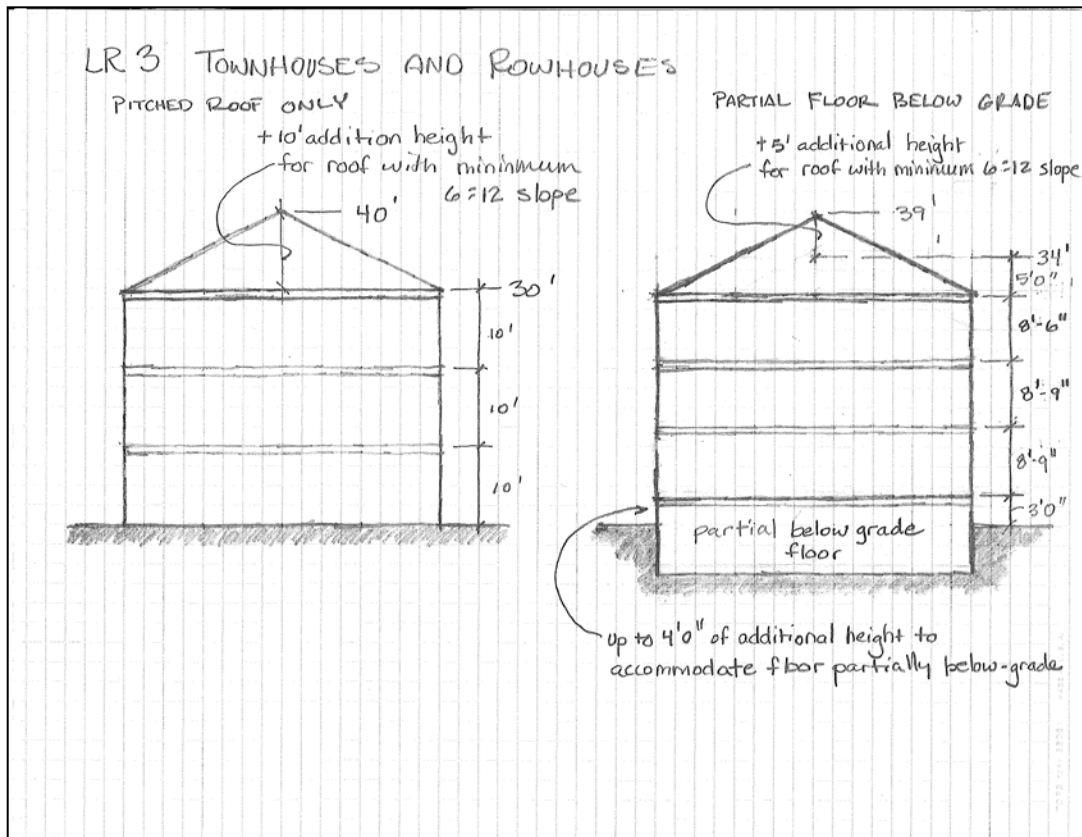 LR 3 TOWNHOUSES AND ROWHOUSES
PITCHED ROOF ONLY
+10' addition height
for roof with mininmum
6:12 slope
40'
30'
10'
10'
10'
PARTIAL FLOOR BELOW GRADE
+5' additional height
for roof with minimum 6:12 slope
39'
34'
5'0"
8'-6"
8'-9"
8'-9"
3'0"
partial below grade
floor
up to 4'0" of additional height to
accommodate floor partially below-grade